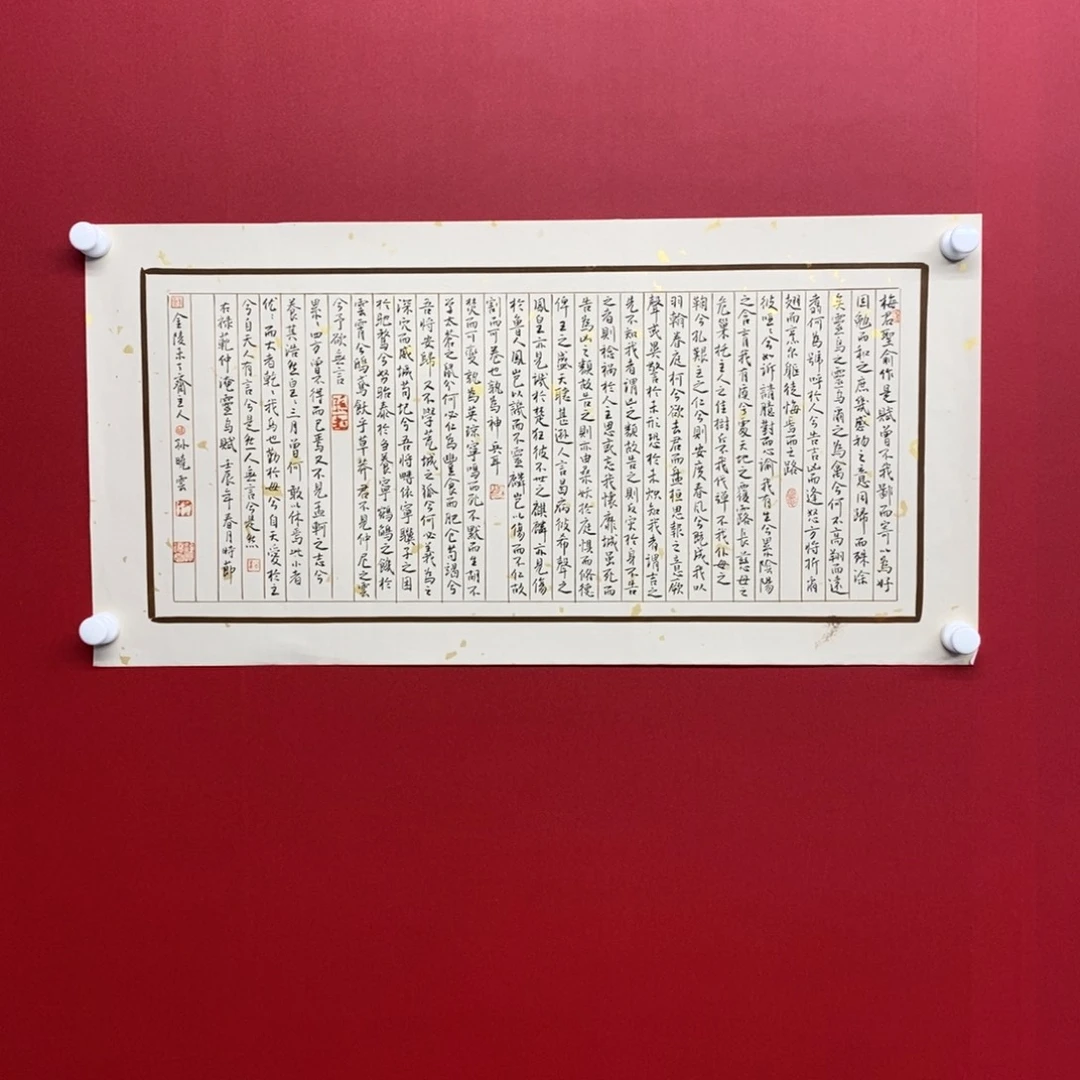 梅君聖俞作是賦曾不我鄙而寄以為好
因勉而和之庶幾感物之意同歸而殊塗
矣靈烏之靈烏爾之為禽兮何不高翔而遠
翥何為號呼於人兮告吉凶而逢怒方將折爾
翅而烹尔軀徒悔焉而亡路
彼啞々兮如訴請臆對而心諭我有生兮累陰陽
之含育我有質兮處天地之覆露長慈母之
危巢托主人之佳樹斤不我伐彈不我仆母之
鞠兮孔艱主之仁兮則安度春風兮既成我以
羽翰眷庭柯兮欲去君而盤桓思報之意厥
聲或異警於未形恐於未熾知我者謂吉之
先不知我者謂凶之類故告之則反災於身不告
之者則稔禍於人主恩或忘我懷靡臧雖死而
告為凶之類故告之則亦由桑妖於庭懼而修德
俾王之盛天聽甚邇人言曷病彼希聲之
鳳皇亦見譏於楚狂彼不世之麒麟亦見傷
於魯人鳳豈以譏而不靈麟豈以傷而不仁故
割而可卷也孰為神兵耳
焚而可變孰為英瓊寧鳴而死不默而生胡不
學太蒼之鼠兮何必仁為豐食而肥倉苟竭兮
吾將安歸又不學荒城之狐兮何必義為
深穴而威城苟圮兮吾將疇依寧驥子之困
於馳騖兮駑駘泰於芻養寧鵷鶵之饑於
雲霄兮鴟鳶飫乎草莽君不見仲尼之雲
兮予欲無言
累々四方曾不得而已焉又不見孟軻之志兮
養其浩然皇々三月曾何敢以休焉此小者
優々而大者乾々我烏也勤於母兮自天愛於主
兮自天人有言兮是然人無言兮是然
右祿范仲淹靈烏賦壬辰年春月時節
金陵未了齋主人孫曉雲